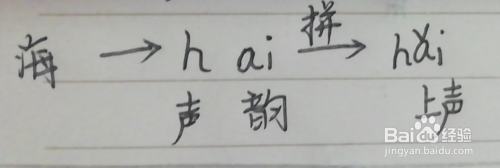 海 → h ai 拼→ hǎi
声 韵 上声
Baidu经验
jingyan.baidu.com